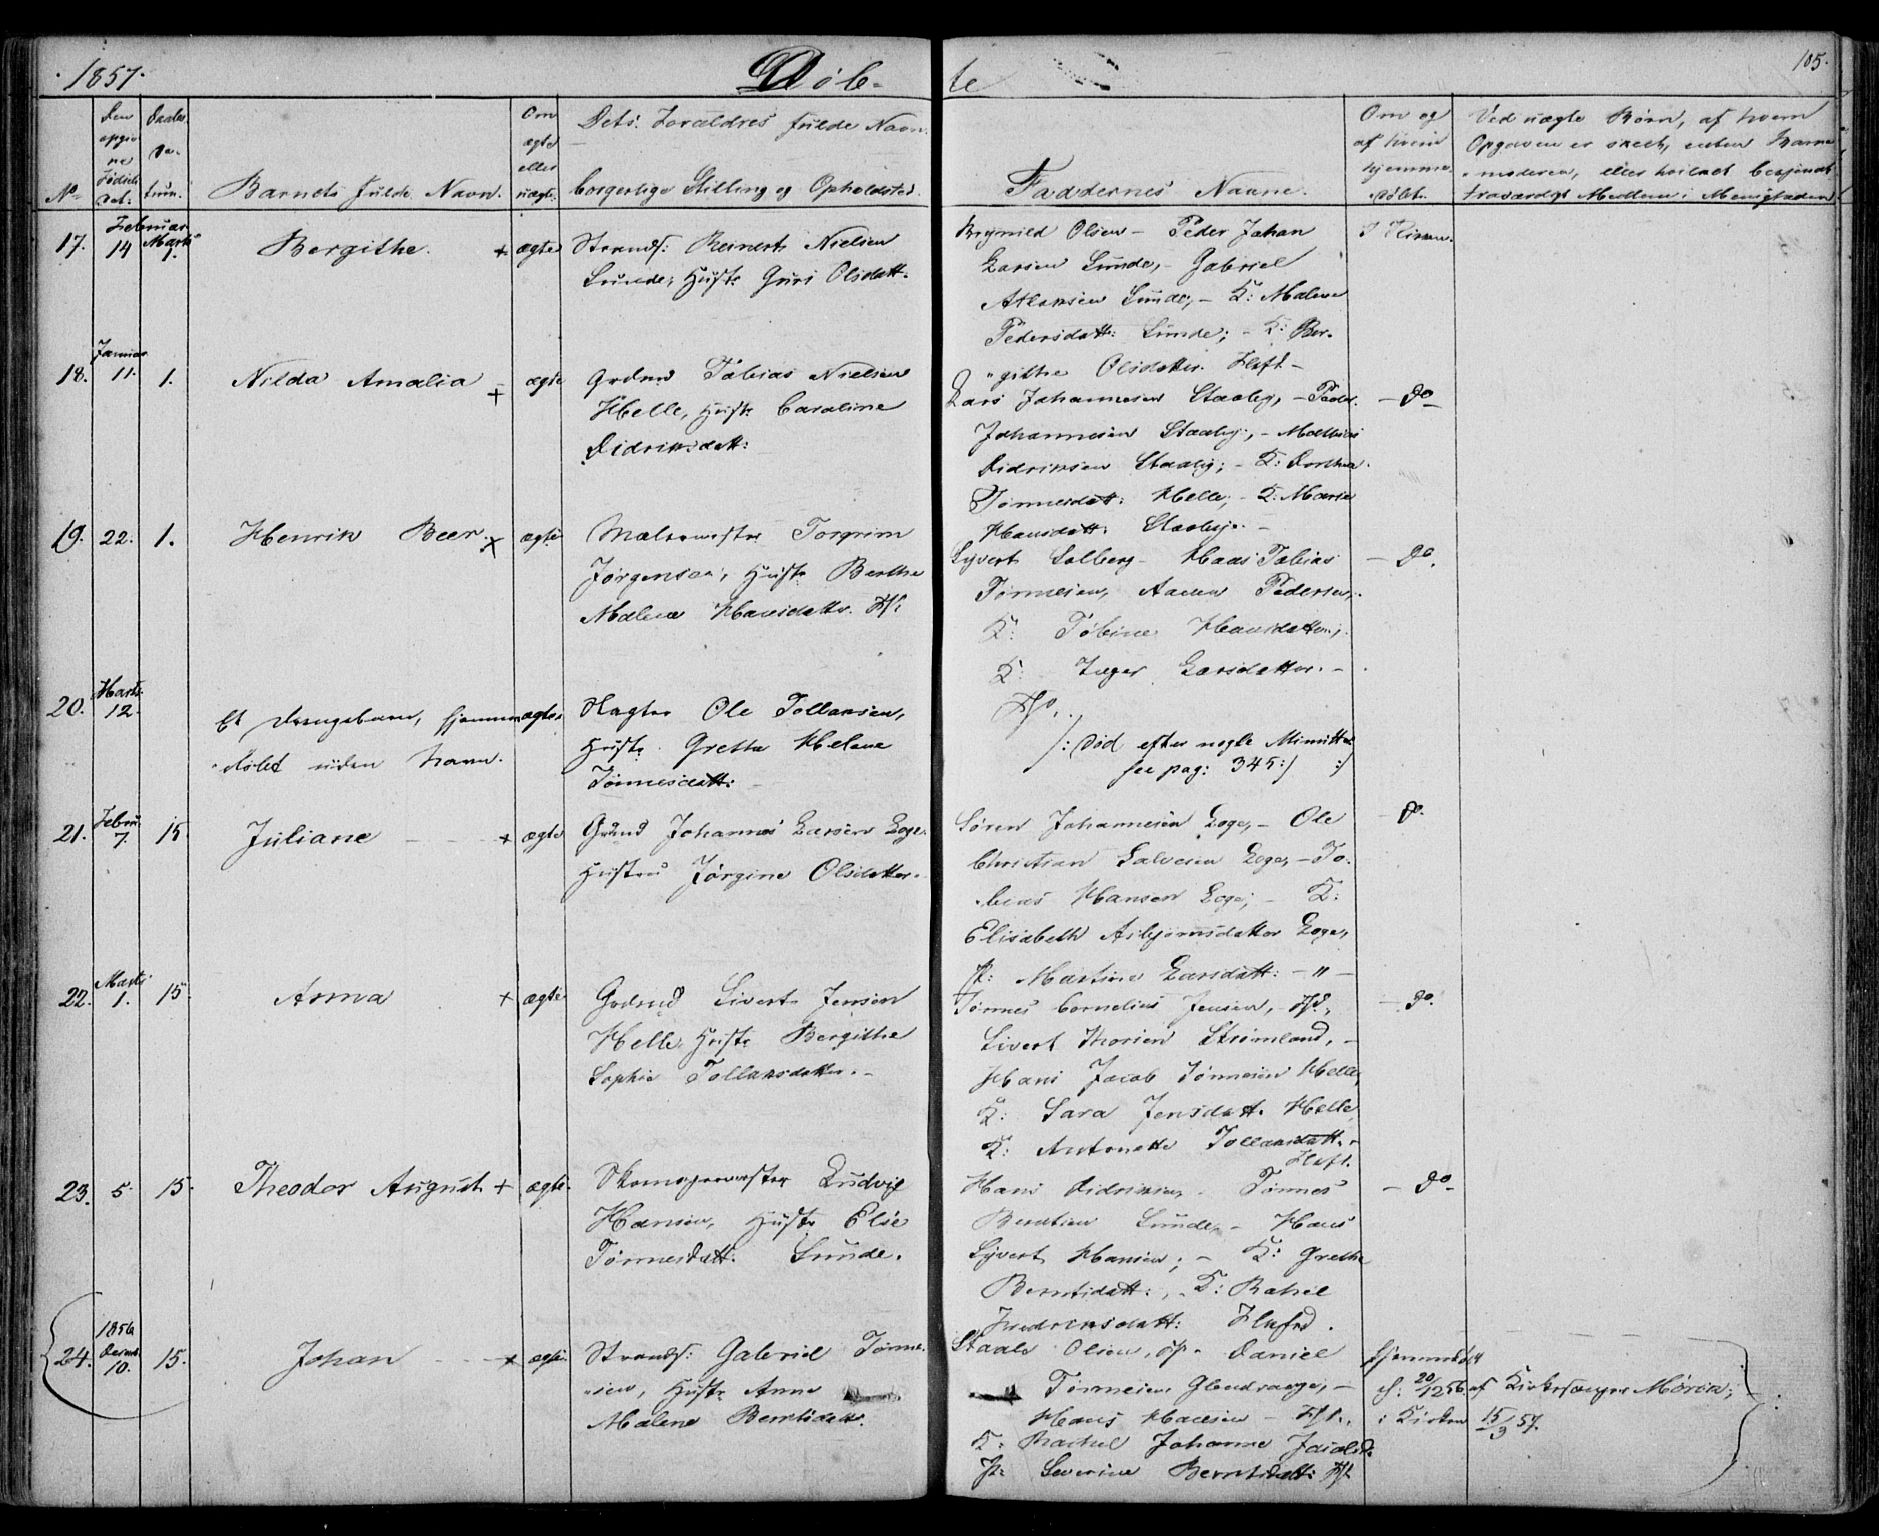 1857.
Døb-
te
105.
No
Den opgivne Fødsels Dat:
Daabs Datum.
Barnets fulde Navn.
Om ægte eller uægte.
Dets Forældres fulde Navn
borgerlige Stilling og Opholdssted.
Faddernes Navne.
Om og af hvem hjemmedøbt.
Ved uægte Børn, af hvem
Opgaven er skeet, enten Barne
moderen, eller hvilket besjendt
troværdigt Medlem i Menigheden
17.
Februar 14
Marts 1.
Bergithe.
+
ægte
Strands: Reinert Nielsen
Lunde, Hustr Guri Olsdatt.
Brynild Olsen - Peder Johan
Larsen Lunde, - Gabriel
Atlaksen Lunde, - K: Malene
Pedersdatt: Lunde; - K: Ber-
githe Olsdatter Flkft -
I Kirken.
18.
Januar 11.
1.
Nilda Amalia
+
ægte
Grdmd Tobias Nielsen
Helle, Hustr Caroline
Didriksdatt:
Lars Johannesen Staaby, - Peder
Johannesen Staaby, - Mathias
Didriksen Staaby; - K: Dorthea
Tønnesdatt: Helle, - K: Marie
Hansdatt: Staaby. -
- Do -
19.
22.
1.
Henrik Beer.
x
ægte
Malermester Torgrim
Jørgensen, Hustr Berthe
Malene Hansdatter. Ff:
Syvert Solberg - Hans Tobias
Tønnesen, Aanen Pedersen,
K: Tobine Hansdatter;
K Inger Larsdatter. -
- Do.
20.
Marts 12.
Et Drengebarn, hjemme
døbt uden Navn.
ægte
Slagter Ole Tollaksen,
Hustr. Grethe Helene
Tønnesdatt: -
/: død efter nogle Minutter
see pag: 345 :/
21.
Febru. 7.
15
Juliane
+
ægte
Grdmd Johannes Larsen Eoge.
Hustru Jørgine Olsdatter.
Søren Johannesen Eoge, - Ole
Christian Salvesen Eoge, - To-
bias Hansen Eoge; - K:
Elisabeth Asbjørnsdatter Eoge,
P: Martine Larsdatt: - " -
- Do.
22.
Marts 1.
15
Anna
+
ægte
Grdmd Sivert Jensen
Helle, Hustr Bergithe
Sophie Tollaksdatter. -
Tønnes Cornelius Jensen, - Ff.,
Sivert Thorsen Strømland, -
Hans Jacob Tønnesen Helle,
K: Sara Jensdatt. Helle
K: Antonette Tollaksdatt.
Flkft.
- Do.
23.
5.
15.
Theodor August
+
ægte.
Skomagermester Ludvig
Hansen, Hustr Elie
Tønnesdatt. Lunde.
Hans Didriksen, - Tønnes
Berntsen Lunde, - Hans
Syvert Hansen; - K: Grethe
Berntsdatt:, - K: Rakel
Fredriksdatt: Flkfrd.
- Do -
24.
1856 Decemb. 10.
15.
Johan
x
ægte.
Strands: Gabriel Tønne-
sen, Hustr Anne
Malene Berntsdatt.
Staale Olsen, Ff. - Daniel
Tønnesen Glendrange, -
Hans Hansen - Ff.,
K: Rachel Johanne Jacobsd.
P: Severine Berntsdatt: Ff.
Hjemmedøbt
d: 20/12 56 af Kirkesanger Mørin;
i Kirken 15/3 57.